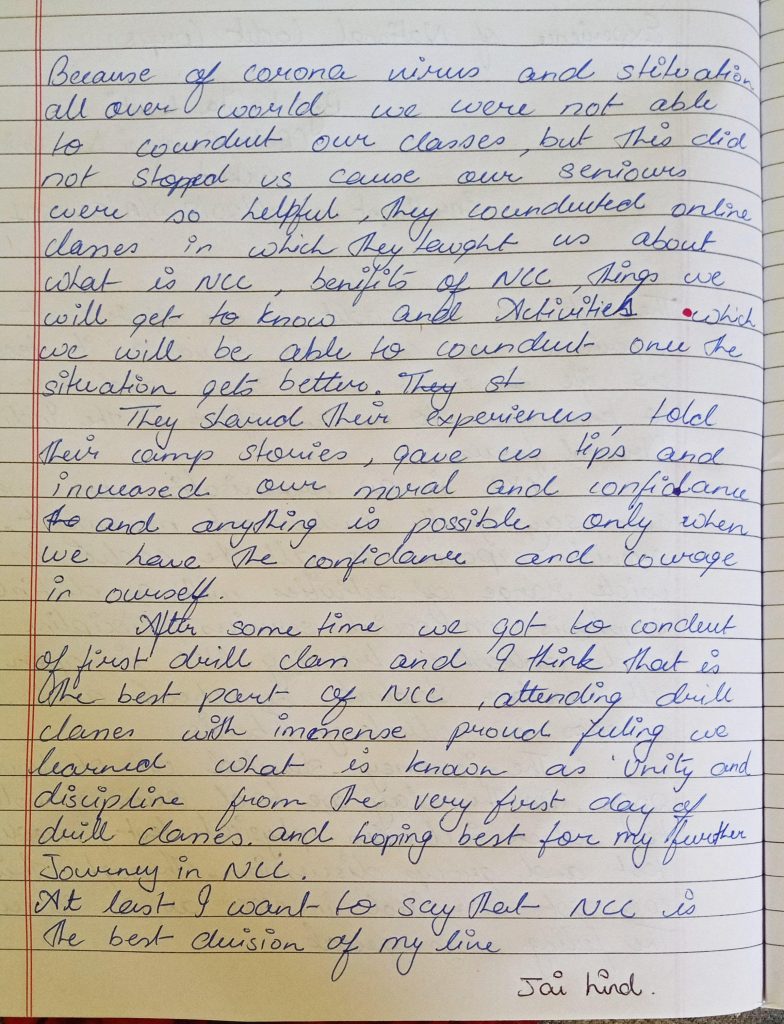 Because of corona virus and stituation
all over world we were not able
to counduct our classes, but this did
not stopped us cause our seniours
were so helpful, they counducted online
classes in which they taught us about
what is NCC, benifits of NCC, things we
will get to know and Activities which
we will be able to counduct once the
situation gets better. They st
They shared their experiences, told
their camp stories, gave us tips and
increased our moral and confidance
and anything is possible only when
we have the confidance and courage
in ourself.
After some time we got to conduct
of first drill class and I think that is
the best part of NCC, attending drill
classes with immense proud feeling we
learned what is known as 'Unity and
discipline from the very first day of
drill classes. and hoping best for my further
Journey in NCC.
At last I want to say that NCC is
the best decision of my line
Jai hind.